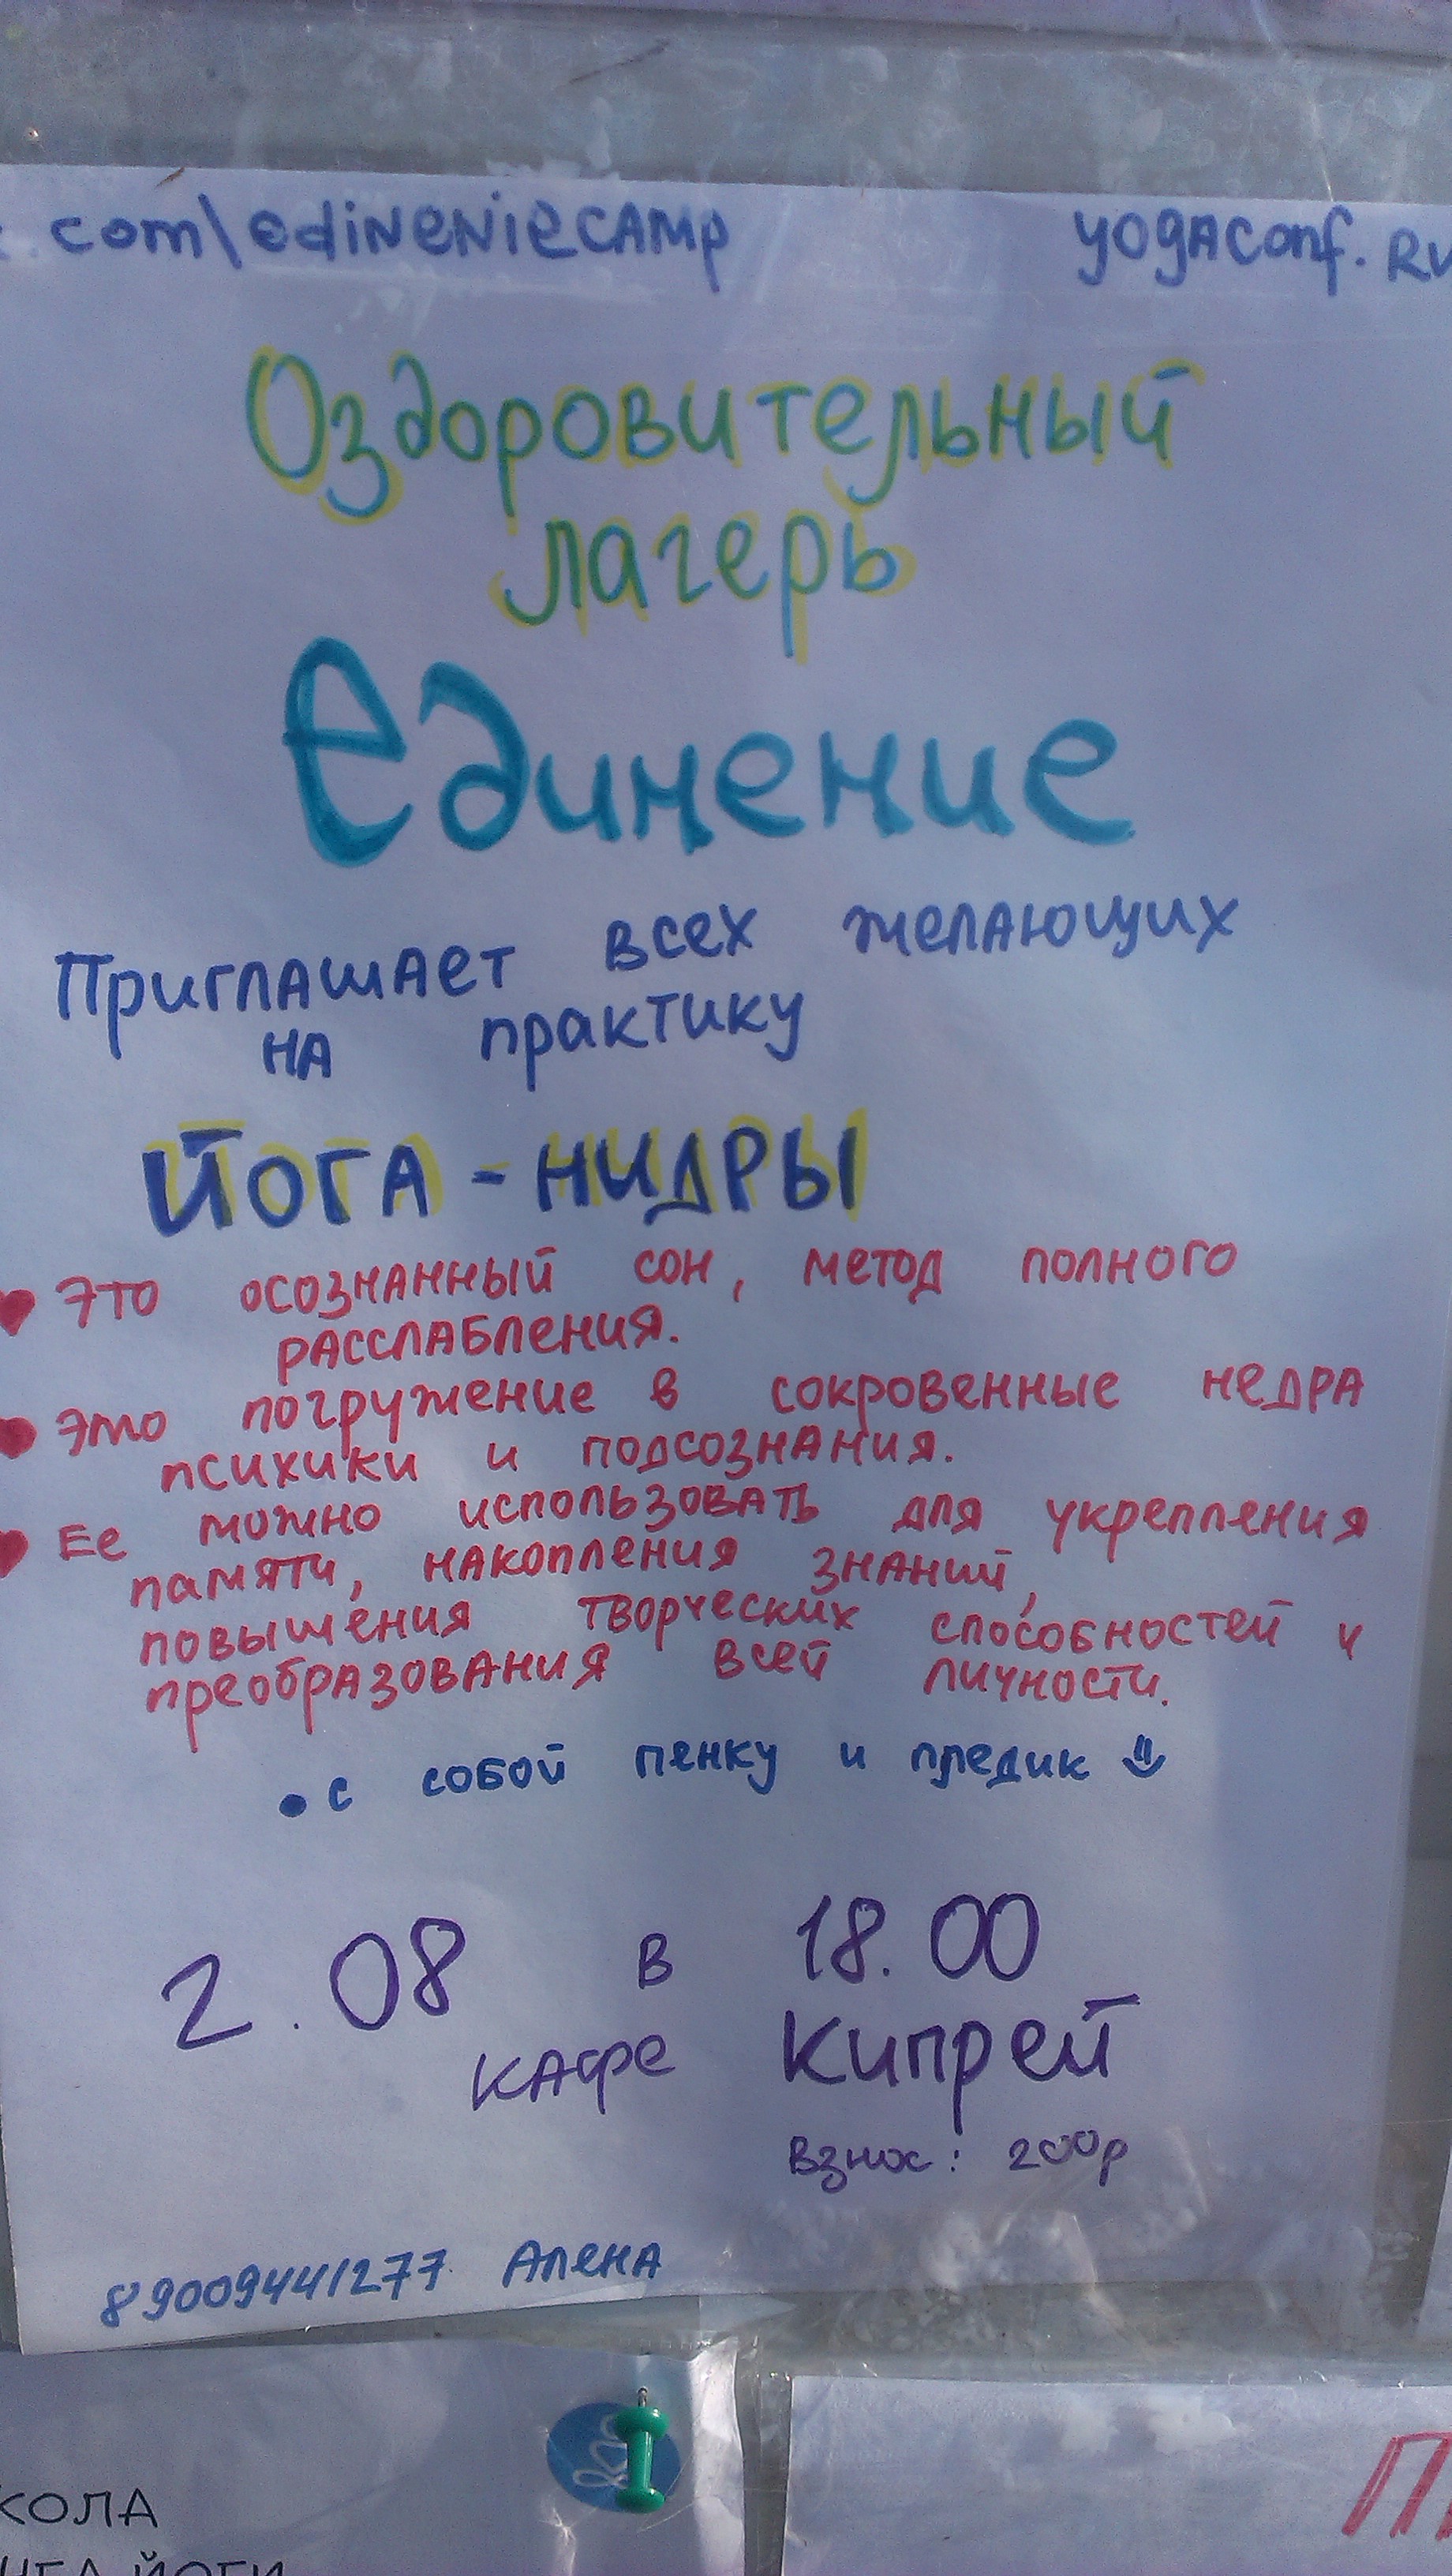 com\edineniecamp yogaconf.ru
Оздоровительный
лагерь
Единение
Приглашает всех желающих
на практику
ЙОГА-НИДРЫ
Это осознанный сон, метод полного
расслабления.
Это погружение в сокровенные недра
психики и подсознания.
Ее можно использовать для укрепления
памяти, накопления знаний,
повышения творческих способностей и
преобразования всей личности.
• с собой пенку и пледик
2.08 в 18.00
кафе Кипрей
Взнос: 200р
89009441277 Алена
КОЛА
ЙОГИ